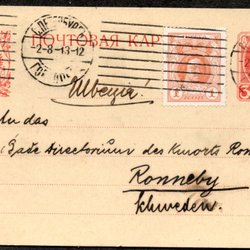 С.ПЕТЕРБУРГ
2-8-13-12
ПОЧТОВАЯ КАР
1 КОП 1
3
Швеція!
An das
Bade Directorium des Kurorts Ron
Ronneby
Schweden.